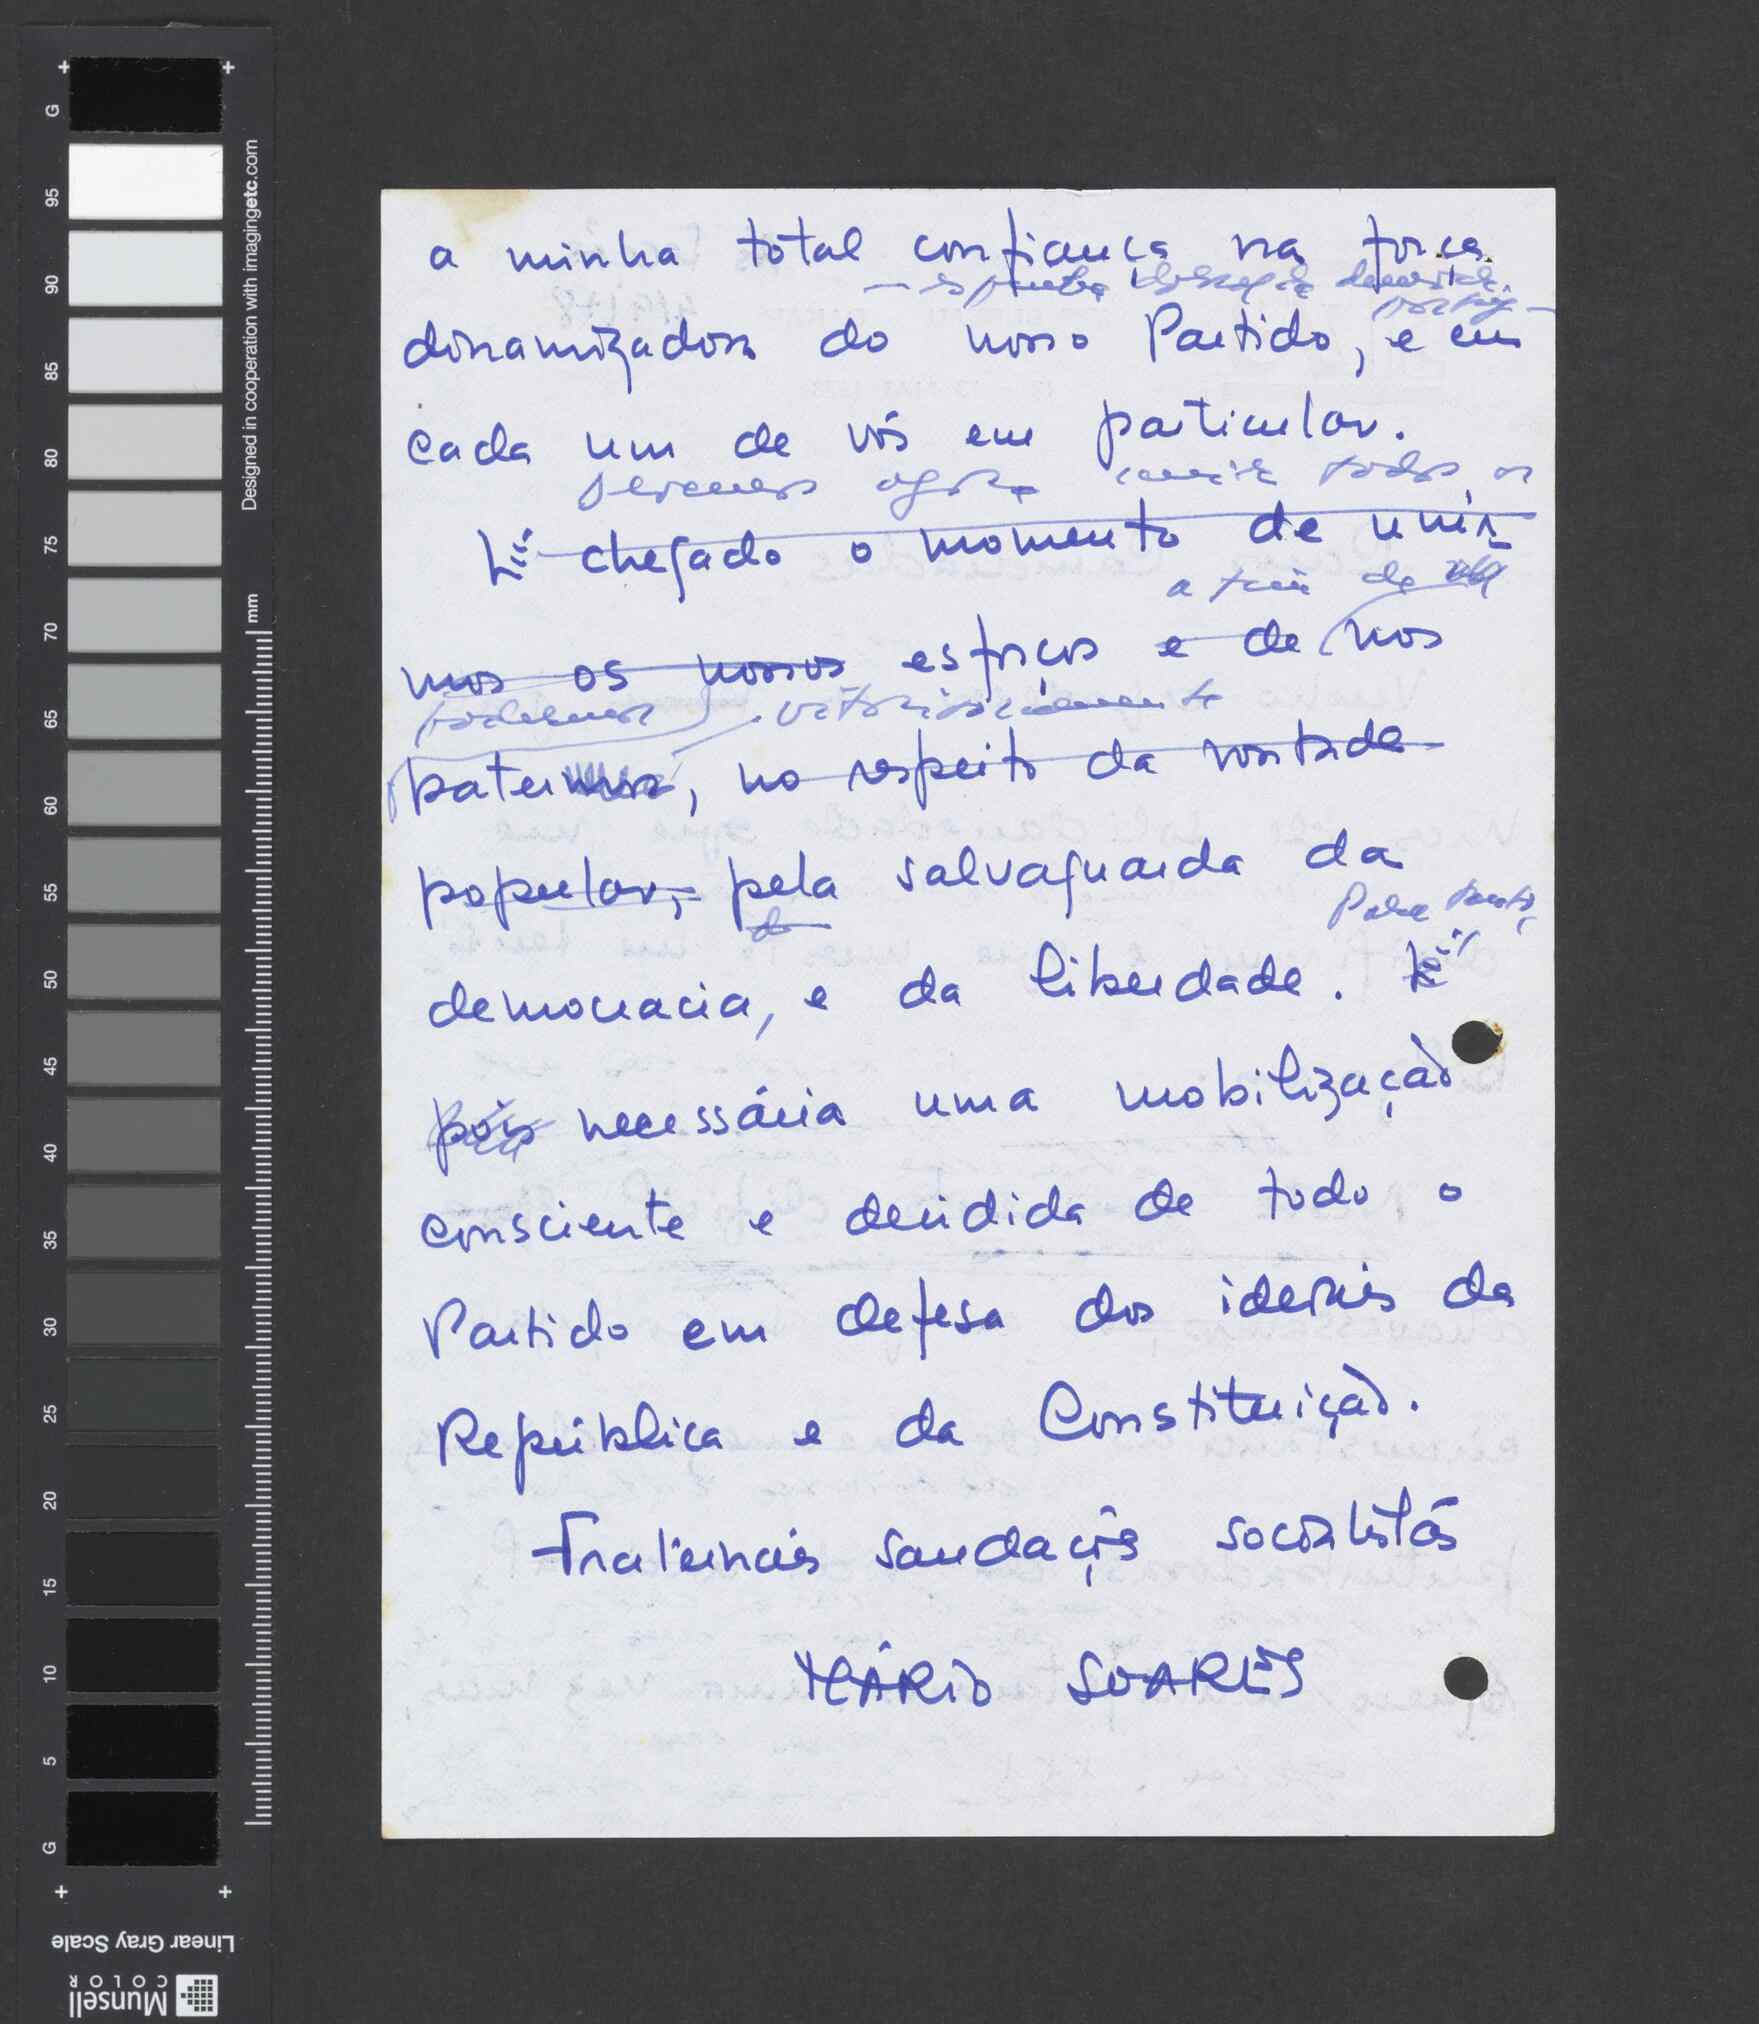 G
95
90
85
80
75
70
65
60
55
50
45
40
35
30
25
20
15
10
5
G
Designed in cooperation with imagingetc.com
mm
Linear Gray Scale
Munsell
COLOR
a minha total confiança na força
dinamizadora do nosso Partido, e em
cada um de vós em particular.
devemos agora unir todos os
É chegado o momento de unir-
a fim de
mos os nossos esforços e de nos
podermos vitoriosamente
batermos, no respeito da vontade
popular, pela salvaguarda da
Para tanto,
democracia, e da liberdade. É
pois necessária uma mobilização
consciente e decidida de todo o
Partido em defesa dos ideais da
República e da Constituição.
Fraternais saudações socialistas
MÁRIO SOARES